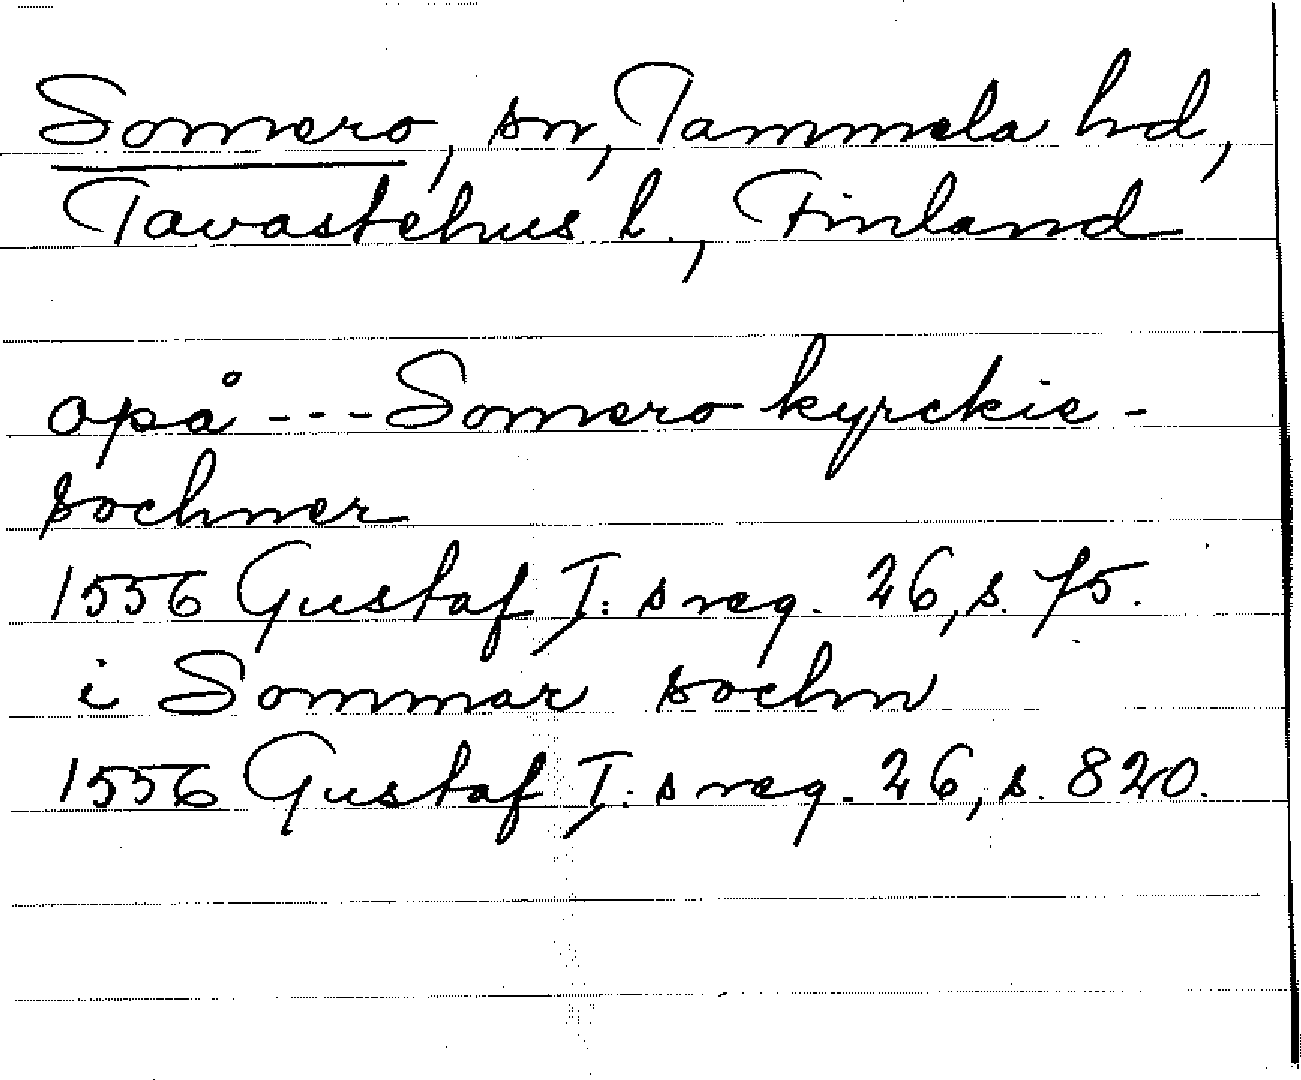 Somero, sn, Tammela hd,
Tavastehus l., Finland
opå --- Somero kyrckie-
sochner
1556 Gustaf I:s reg. 26, s. 75.
i Sommar sochn
1556 Gustaf I:s reg. 26, s. 820.